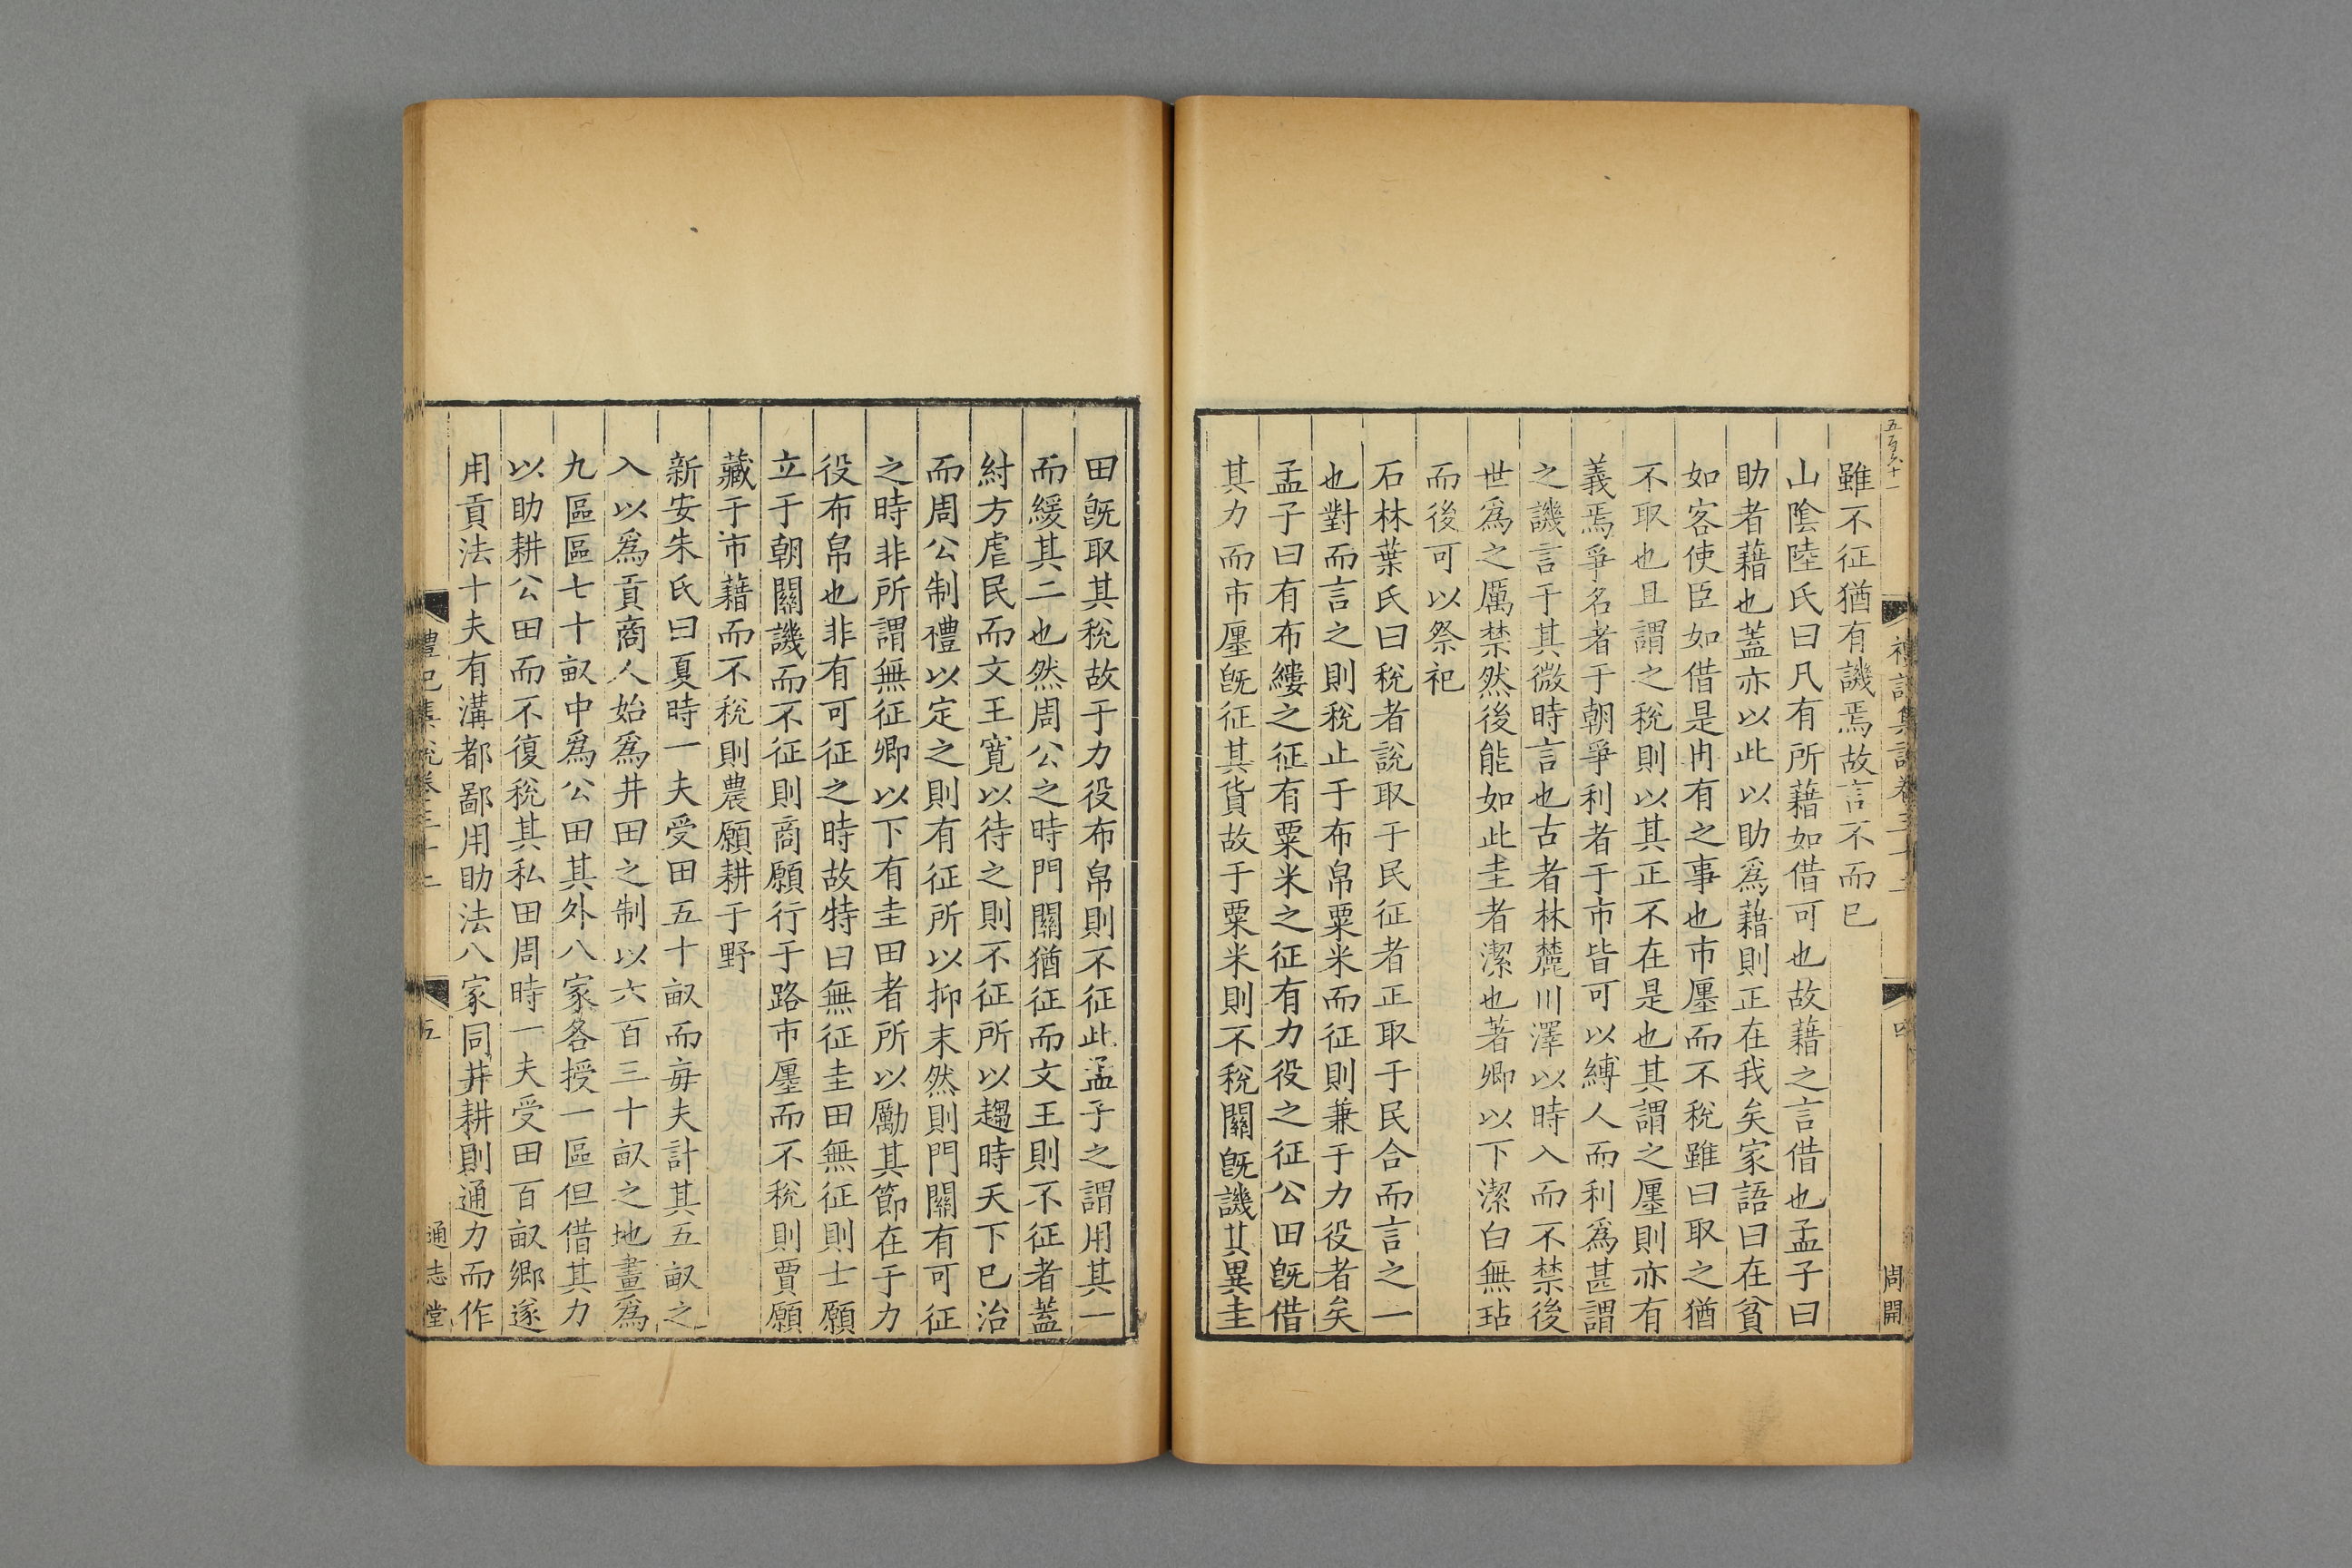 雖不征猶有譏焉故言不而已
山陰陸氏曰凡有所藉如借可也故藉之言借也孟子曰
助者藉也蓋亦以此以助爲藉則正在我矣家語曰在貧
如客使臣如借是冉有之事也市廛而不稅雖曰取之猶
不取也且謂之稅則以其正不在是也其謂之廛則亦有
義焉爭名者于朝爭利者于市皆可以縛人而利爲甚謂
之譏言于其微時言也古者林麓川澤以時入而不禁後
世爲之厲禁然後能如此圭者潔也著卿以下潔白無玷
而後可以祭祀
石林葉氏曰稅者說取于民征者正取于民合而言之一
也對而言之則稅止于布帛粟米而征則兼于力役者矣
孟子曰有布縷之征有粟米之征有力役之征公田旣借
其力而市廛旣征其貨故于粟米則不稅關旣譏其異圭
田旣取其稅故于力役布帛則不征此孟子之謂用其一
而緩其二也然周公之時門關猶征而文王則不征者蓋
紂方虐民而文王寬以待之則不征所以趨時天下已治
而周公制禮以定之則有征所以抑末然則門關有可征
之時非所謂無征卿以下有圭田者所以勵其節在于力
役布帛也非有可征之時故特曰無征圭田無征則士願
立于朝關譏而不征則商願行于路市廛而不稅則賈願
藏于市藉而不稅則農願耕于野
新安朱氏曰夏時一夫受田五十畝而每夫計其五畝之
入以爲貢商人始爲井田之制以六百三十畝之地畫爲
九區區七十畝中爲公田其外八家各授一區但借其力
以助耕公田而不復稅其私田周時一夫受田百畝鄉遂
用貢法十夫有溝都鄙用助法八家同井耕則通力而作
五百六十一
禮記集說卷三十二
四
周開
禮記集說卷三十二
五
通志堂